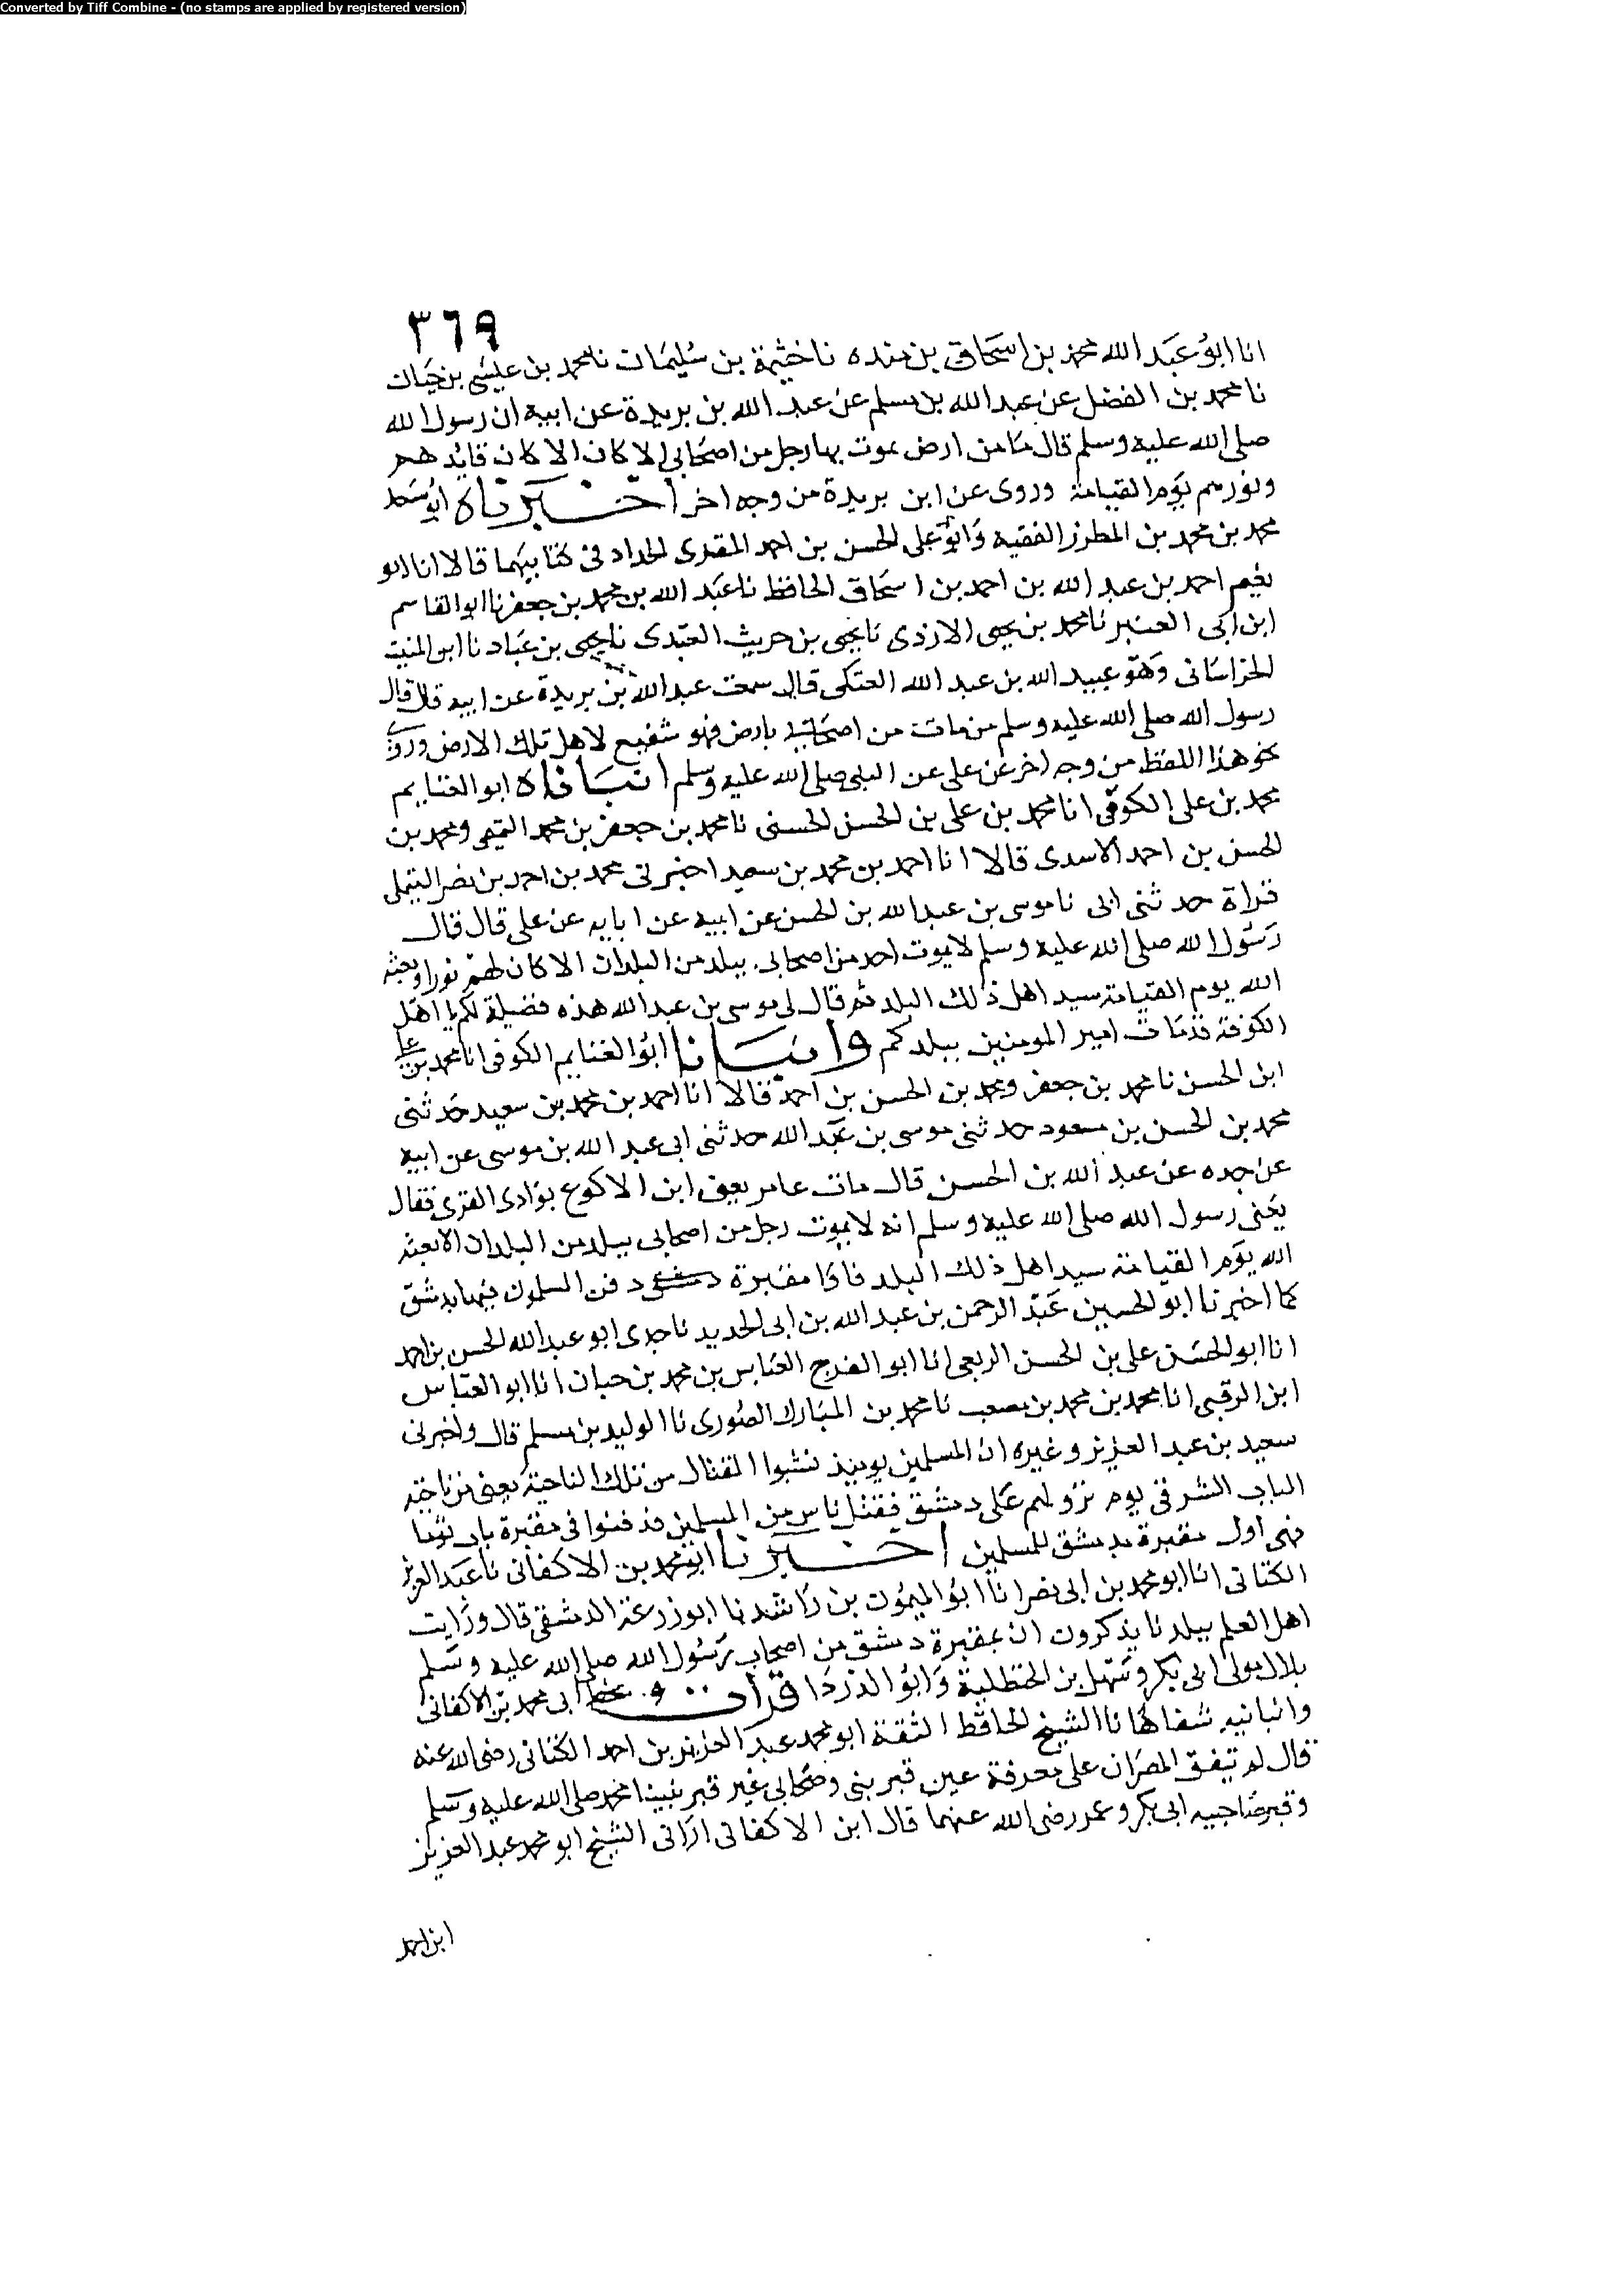 Converted by Tiff Combine - (no stamps are applied by registered version)
٣٦٩
انا ابو عبد الله محمد بن اسحاق بن منده نا خثيمة بن سليمان نا محمد بن عيسى بن حيان
نا محمد بن الفضل عن عبد الله بن مسلم عن عبد الله بن بريدة عن ابيه ان رسول الله
صلى الله عليه وسلم قال ما من ارض يموت بها رجل من اصحابي الا كان الا كان قايدهم
ونورهم يوم القيامة وروى عن ابن بريدة من وجه اخر اخبرناه ابو سعد
محمد بن محمد بن المطرز الفقيه وابو على الحسن بن احمد المقرى الحداد في كتابيهما قالا انا ابو
نعيم احمد بن عبد الله بن احمد بن اسحاق الحافظ نا عبد الله بن محمد بن جعفر نا ابو القاسم
ابن ابي العنبر نا محمد بن يحيى الازدى نا يحيى بن حريث العبدى نا يحيى بن عباد نا ابو المنيت
الخراسانى وهو عبيد الله بن عبد الله العتكى قال سمعت عبد الله بن بريدة عن ابيه قال قال
رسول الله صلى الله عليه وسلم من مات من اصحابي بارض فهو شفيع لاهل تلك الارض وروى
نحو هذا اللفظ من وجه اخر عن على عن النبى صلى الله عليه وسلم انباناه ابو الغنايم
محمد بن على الكوفى انا محمد بن على بن الحسن الحسنى نا محمد بن جعفر بن محمد التميمى ومحمد بن
الحسن بن احمد الاسدى قالا انا احمد بن محمد بن سعيد اخبرنى محمد بن احمد بن نصر التيملى
قراة حدثنى ابى نا موسى بن عبد الله بن الحسن عن ابيه عن ابايه عن على قال قال
رسول الله صلى الله عليه وسلم لا يموت احد من اصحابى ببلد من البلدان الا كان لهم نورا وبعثه
الله يوم القيامة سيد اهل ذلك البلد ثم قال لى موسى بن عبد الله هذه فضيلة لكم يا اهل
الكوفة قد مات امير المومنين ببلدكم وانبانا ابو الغنايم الكوفى انا محمد بن على
ابن الحسن نا محمد بن جعفر ومحمد بن الحسن بن احمد قالا انا احمد بن محمد بن سعيد حدثنى
محمد بن الحسن بن مسعود حدثنى موسى بن عبد الله حدثنى ابى عبد الله بن موسى عن ابيه
عن جده عن عبد الله بن الحسن قال مات عامر يعنى ابن الاكوع بوادى القرى فقال
يعنى رسول الله صلى الله عليه وسلم انه لا يموت رجل من اصحابى ببلد من البلدان الا بعثه
الله يوم القيامة سيد اهل ذلك البلد فاما مقبرة دفن المسلمون فيها بدمشق
كما اخبرنا ابو الحسين عبد الرحمن بن عبد الله بن ابى الحديد نا جدى ابو عبد الله الحسن بن احمد
انا ابو الحسن على بن الحسن الربعى انا ابو الفرج العباس بن محمد بن حبان انا ابو العباس
ابن الزفتى انا محمد بن محمد بن مصعب نا محمد بن المبارك الصورى نا الوليد بن مسلم قال واخبرنى
سعيد بن عبد العزيز وغيره ان المسلمين يوميذ نشبوا القتال من تلك الناحية يعنى من ناحية
الباب الشرقى يوم نزولهم على دمشق فقتل ناس من المسلمين فدفنوا فى مقبرة باب توما
فهى اول مقبرة بدمشق للمسلمين اخبرنا ابو محمد بن الاكفانى نا عبد العزيز
الكتانى انا ابو محمد بن ابى نصر انا ابو الميمون بن راشد نا ابو زرعة الدمشقى قال ورايت
اهل العلم ببلدنا يذكرون ان بمقبرة دمشق من اصحاب رسول الله صلى الله عليه وسلم
بلال مولى ابى بكر وسهل بن الحنظلية وابو الدردا قرات بخط ابى محمد بن الاكفانى
وانبانيه شفاها نا الشيخ الحافظ الثقة ابو محمد عبد العزيز بن احمد الكتانى رضى الله عنه
قال لم تيفق المصران على معرفة عين قبر بنى وصحابى غير قبر نبينا محمد صلى الله عليه وسلم
وقبر صاحبيه ابى بكر وعمر رضى الله عنهما قال ابن الاكفانى ارانى الشيخ ابو محمد عبد العزيز
ابن احمد